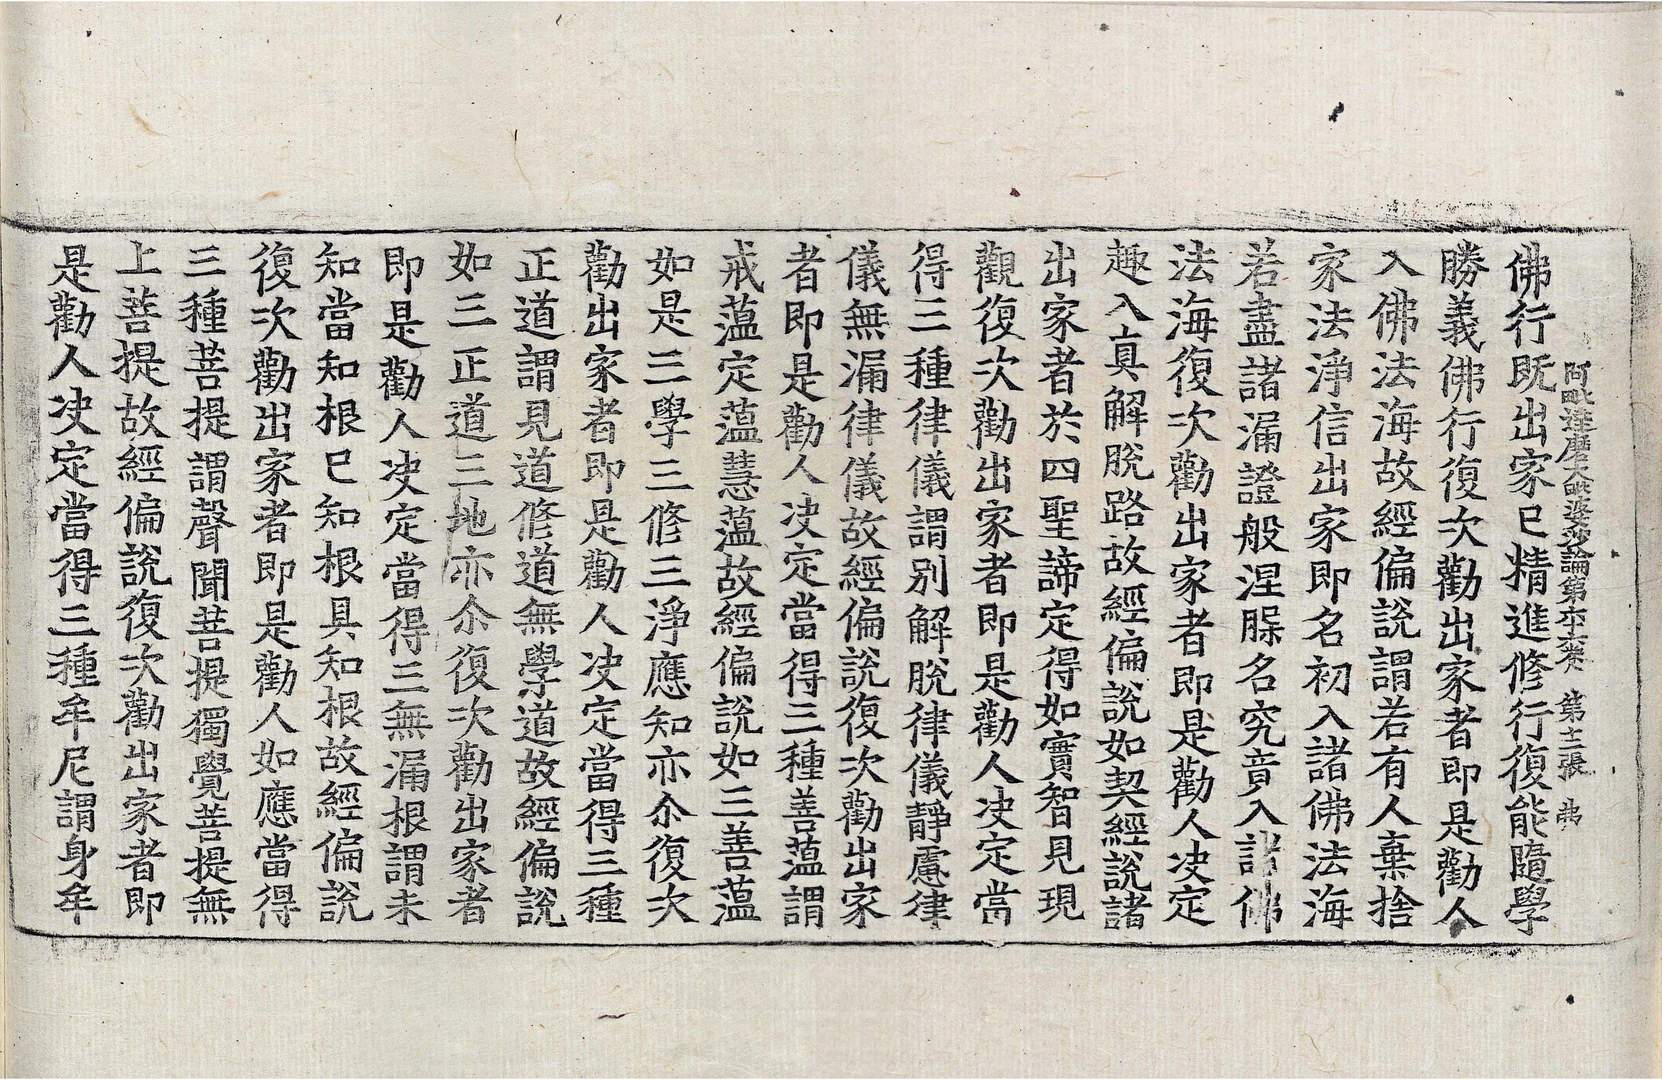 阿毗達磨大毗婆沙論第六十六卷 第十二張 弗
佛行既出家已精進修行復能隨學
勝義佛行復次勸出家者即是勸人
入佛法海故經偏說謂若有人棄捨
家法淨信出家即名初入諸佛法海
若盡諸漏證般涅脲名究竟入諸佛
法海復次勸出家者即是勸人决定
趣入真解脫路故經偏說如契經說諸
出家者於四聖諦定得如實智見現
觀復次勸出家者即是勸人决定當
得三種律儀謂別解脫律儀靜慮律
儀無漏律儀故經偏說復次勸出家
者即是勸人决定當得三種善蕰謂
戒蕰定蕰慧蕰故經偏說如三善蕰
如是三學三修三淨應知亦尒復次
勸出家者即是勸人决定當得三種
正道謂見道修道無學道故經偏說
如三正道三地亦尒復次勸出家者
即是勸人决定當得三無漏根謂未
知當知根已知根具知根故經偏說
復次勸出家者即是勸人如應當得
三種菩提謂聲聞菩提獨覺菩提無
上菩提故經偏說復次勸出家者即
是勸人决定當得三種牟尼謂身牟